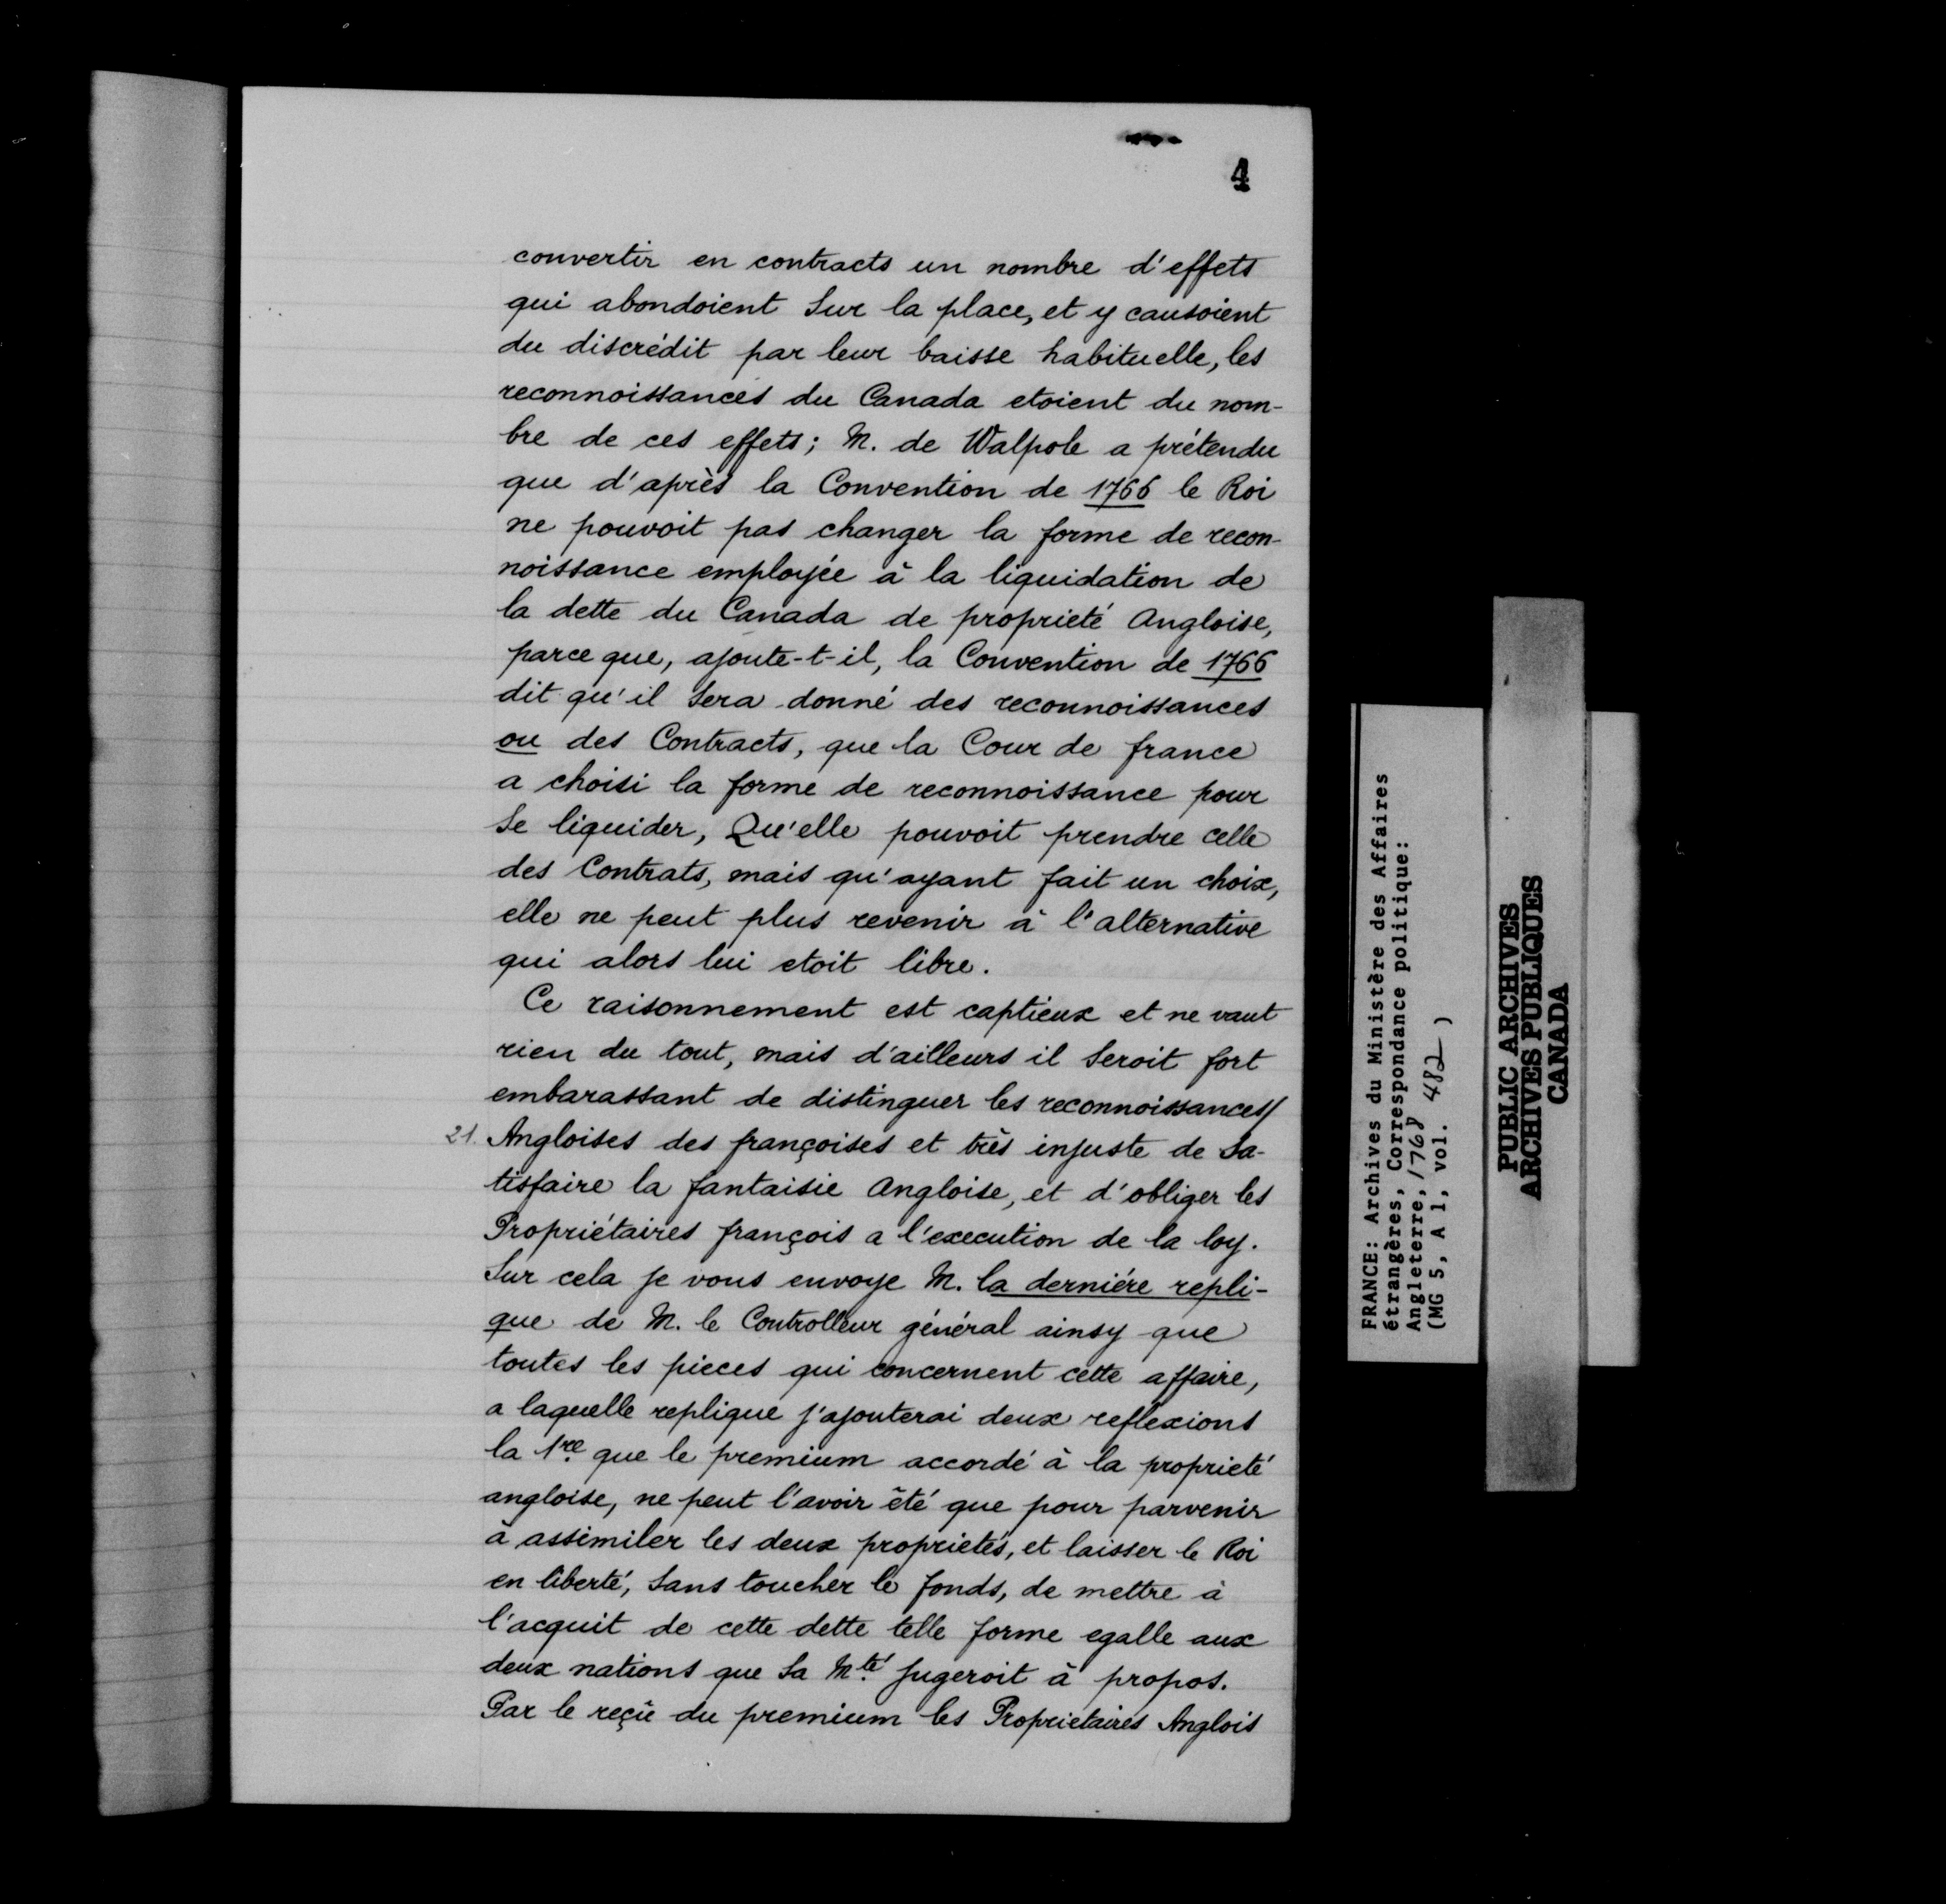 4
convertir en contracts un nombre d'effets
qui abondoient Sur la place, et y causoient
du discrédit par leur baisse habituelle, les
reconnoissances du Canada etoient du nom-
bre de ces effets; M. de Walpole a prétendu
que d'après la Convention de 1766 le Roi
ne pouvoit pas changer la forme de recon-
noissance employée à la liquidation de
la dette du Canada de proprieté Angloise,
parce que, ajoute-t-il, la Convention de 1766
dit qu'il Sera donné des reconnoissances
ou des Contracts, que la Cour de france
a choisi la forme de reconnoissance pour
Se liquider, Qu'elle pouvoit prendre celle
des Contrats, mais qu'ayant fait un choix,
elle ne peut plus revenir à l'alternative
qui alors lui etoit libre.
Ce raisonnement est captieux et ne vaut
rien du tout, mais d'ailleurs il Seroit fort
embarassant de distinguer les reconnoissances/
21. Angloises des françoises et très injuste de Sa-
tisfaire la fantaisie Angloise, et d'obliger les
Propriétaires françois a l'execution de la loy.
Sur cela je vous envoye M. la derniére repli-
que de M. le Controlleur général ainsy que
toutes les pieces qui concernent cette affaire,
a laquelle replique j'ajouterai deux reflexions
la 1re que le premium accordé à la proprieté
angloise, ne peut l'avoir été que pour parvenir
à assimiler les deux proprietés, et laisser le Roi
en liberté, Sans toucher le fonds, de mettre à
l'acquit de cette dette telle forme egalle aux
deux nations que Sa Mté jugeroit à propos.
Par le reçû du premium les Proprietaires Anglois
FRANCE: Archives du Ministère des Affaires
étrangères, Correspondance politique:
Angleterre, 1768
(MG 5, A 1, vol. 482)
PUBLIC ARCHIVES
ARCHIVES PUBLIQUES
CANADA